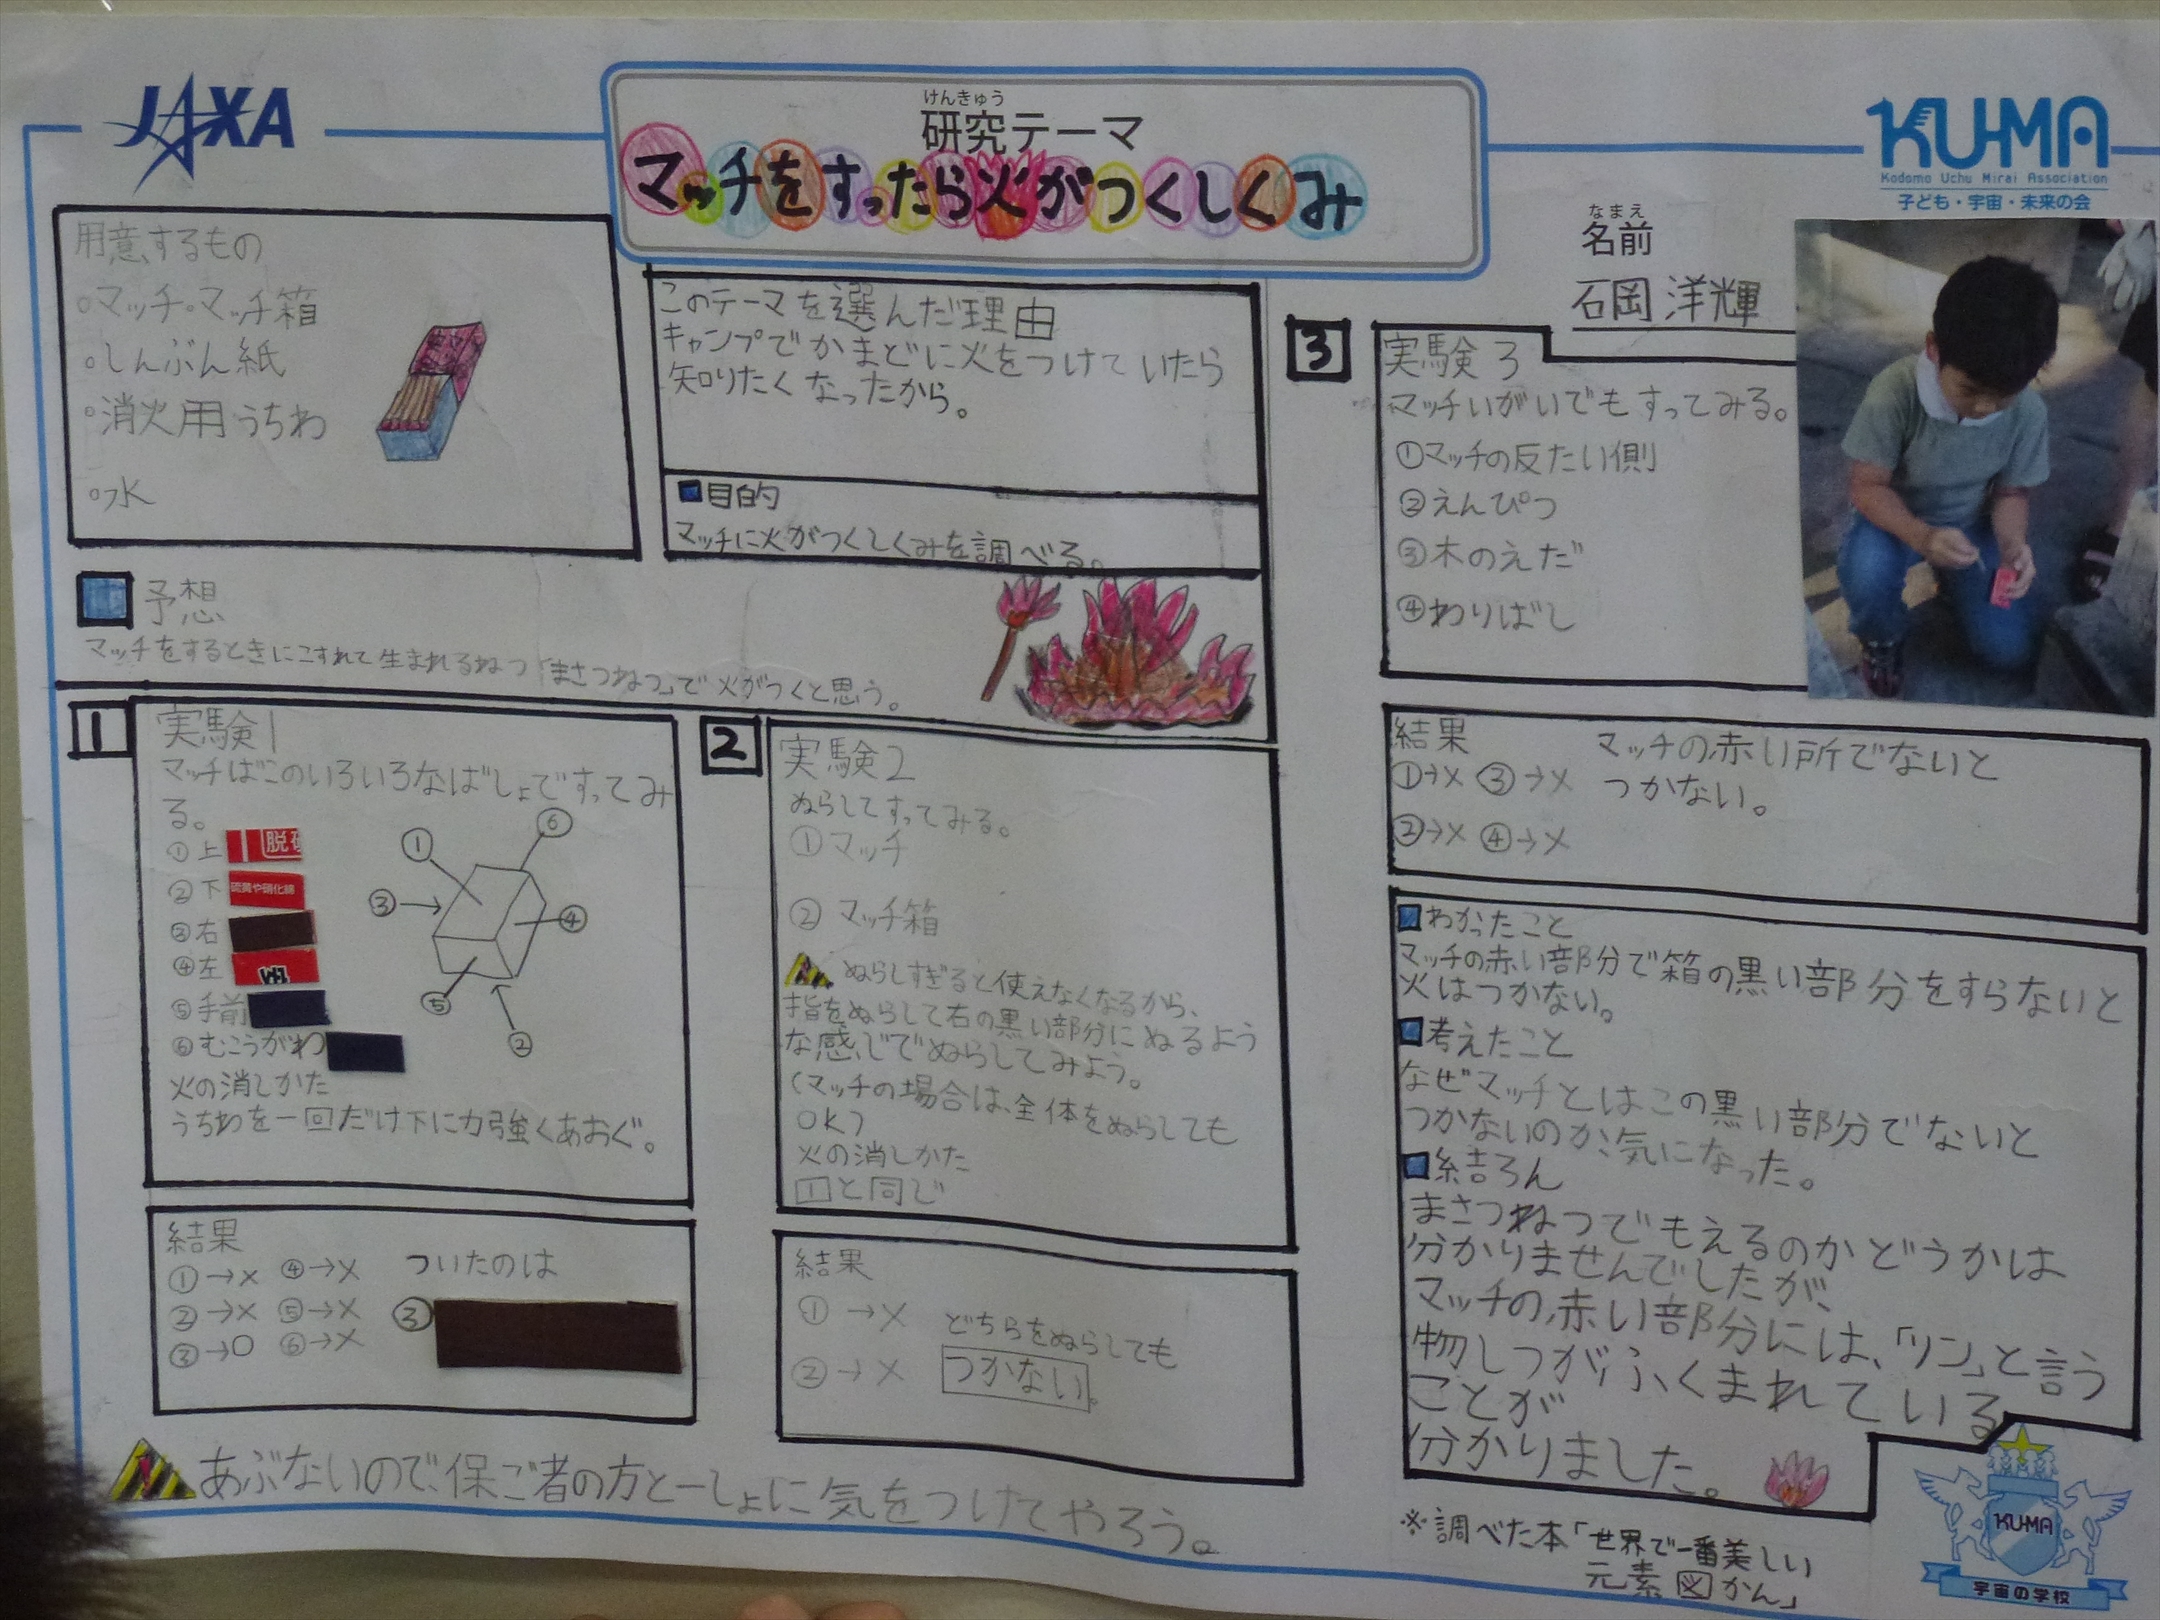 JAXA
けんきゅう
研究テーマ
マッチをすったら火がつくしくみ
KU-MA
Kodomo Uchu Mirai Association
子ども・宇宙・未来の会
なまえ
名前
石岡 洋輝
用意するもの
○マッチ・マッチ箱
○しんぶん紙
○消火用うちわ
○水
このテーマを選んだ理由
キャンプでかまどに火をつけていたら
知りたくなったから。
目的
マッチに火がつくしくみを調べる。
予想
マッチをするときにこすれて生まれるねつ「まさつねつ」で火がつくと思う。
1
実験1
マッチばこのいろいろなばしょですってみ
る。
①上
脱
②下
硫黄や硝化綿
③右
④左
⑤手前
⑥むこうがわ
① ⑥ ③ ④ ⑤ ②
火の消しかた
うちわを一回だけ下に力強くあおぐ。
結果
①→× ④→× ついたのは
②→× ⑤→×
③→○ ⑥→×
③
2
実験2
ぬらしてすってみる。
①マッチ
② マッチ箱
ぬらしすぎると使えなくなるから、
指をぬらして右の黒い部分にぬるよう
な感じでぬらしてみよう。
(マッチの場合は、全体をぬらしても
OK)
火の消しかた
1と同じ
結果
① →× どちらをぬらしても
② →× つかない。
3
実験3
マッチいがいでもすってみる。
①マッチの反たい側
②えんぴつ
③木のえだ
④わりばし
結果
マッチの赤い所でないと
①→× ③→× つかない。
②→× ④→×
わかったこと
マッチの赤い部分で箱の黒い部分をすらないと
火はつかない。
考えたこと
なぜマッチとはこの黒い部分でないと
つかないのか、気になった。
結ろん
まさつねつでもえるのかどうかは
分かりませんでしたが、
マッチの赤い部分には、「リン」と言う
物しつがふくまれている
ことが
分かりました。
あぶないので、保ご者の方と一しょに気をつけてやろう。
※調べた本「世界で一番美しい
元素図かん」
KU-MA
宇宙の学校